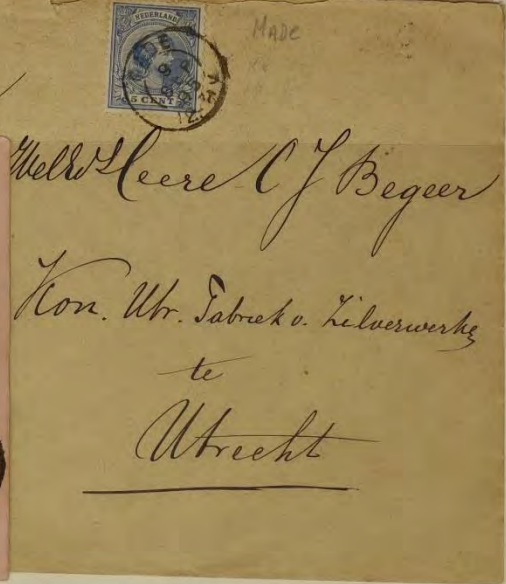 NEDERLAND
5 CENT
MADE
WelEd Heere C J Begeer
Kon. Utr. Fabriek v. Zilverwerke
te
Utrecht